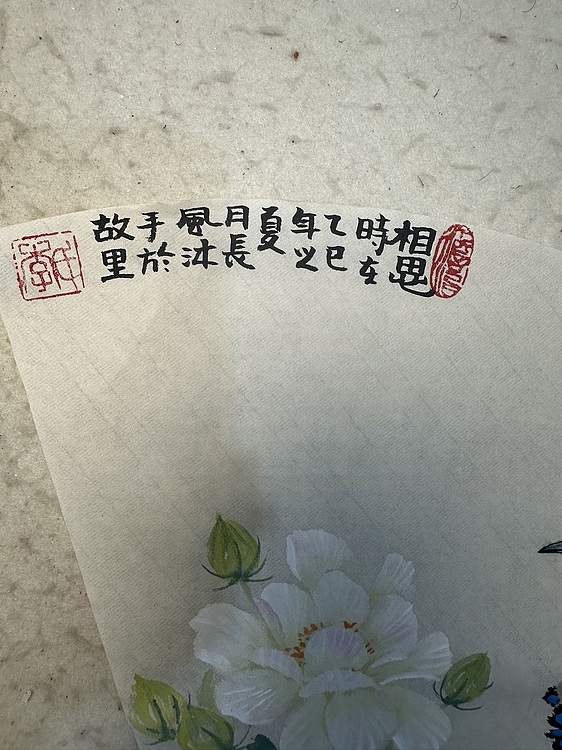 相思
時在
乙巳
年之
夏
月長
風沐
手於
故里